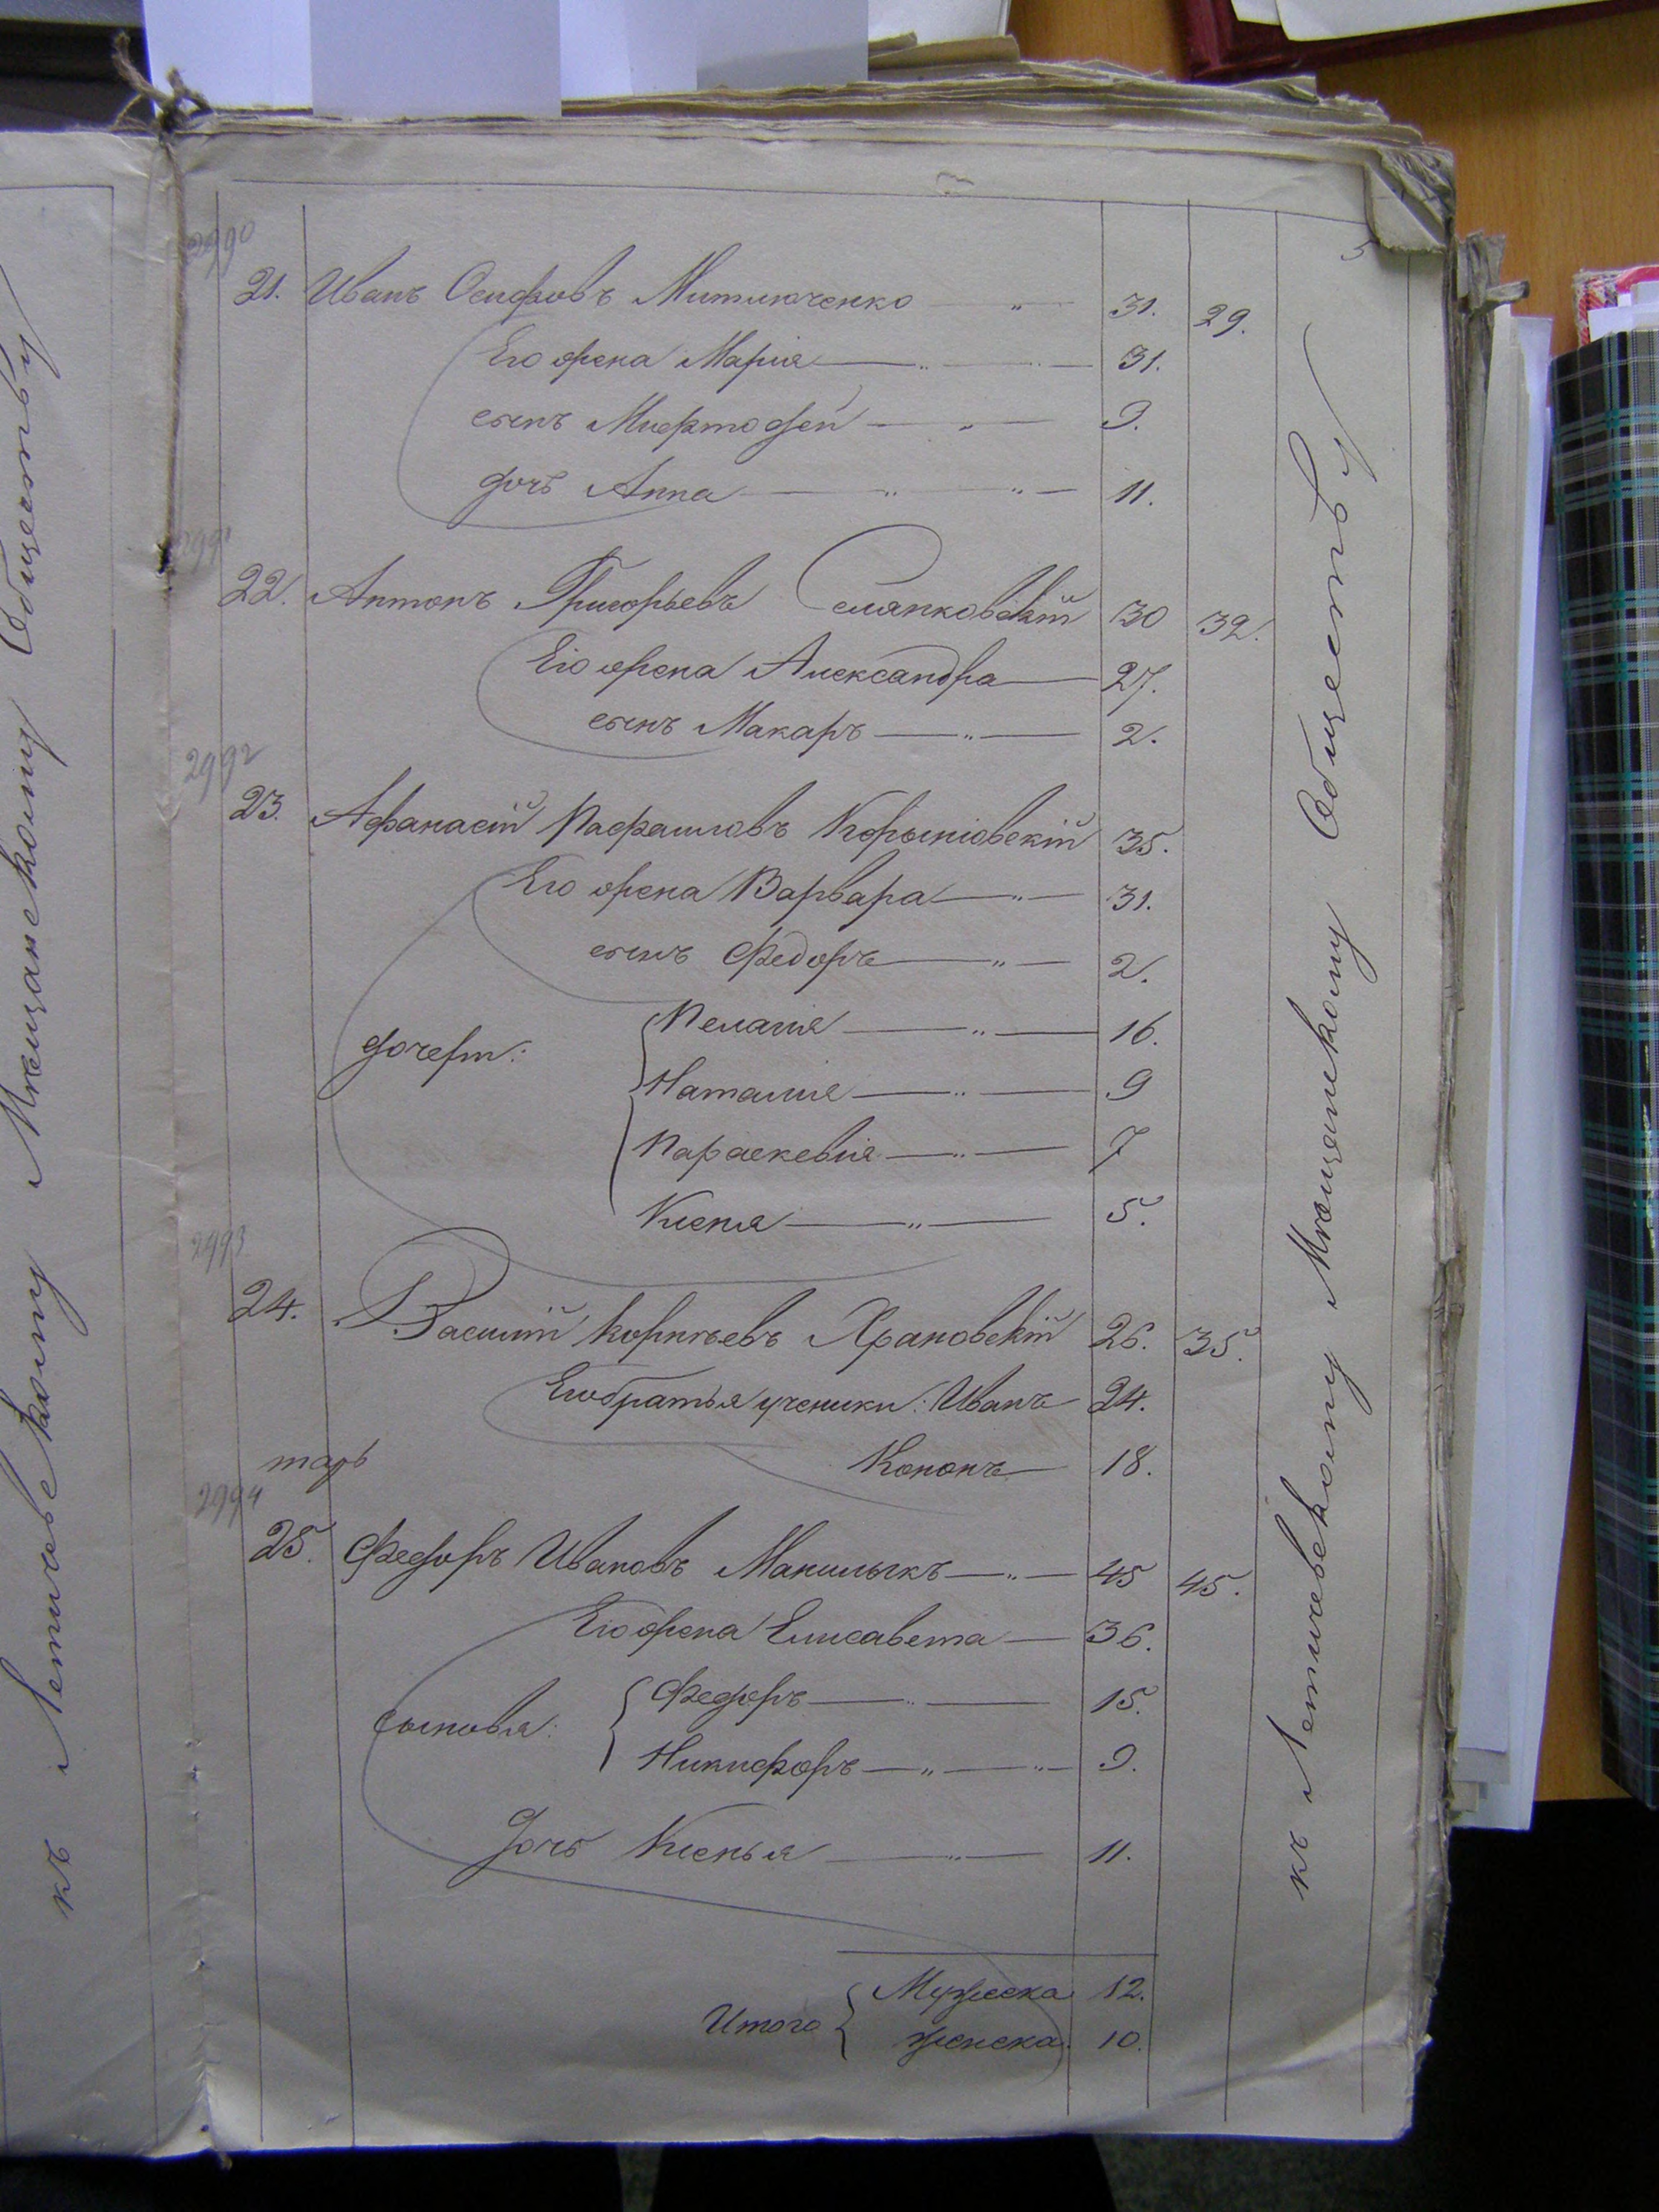 5
2990
21. Иванъ Осифовъ Митюченко " 31. 29.
Его жена Марія " 31.
сынъ Мифтодей " 9.
дочь Анна " " 11.
2991
22. Антонъ Григорьевъ 30 32.
Его жена Александра 27.
сынъ Макаръ " 2.
2992
23. Афанасій 35.
Его жена Варвара " 31.
сынъ Федоръ " 2.
дочери: Пелагія " 16.
Наталия " 9
Параскевія " 7
Ксенія " 5.
2993
24. Василій Корнѣевъ Храновскій 26. 35.
Его братья ученики: Иванъ 24.
Кононъ 18.
2994
25. Федоръ Ивановъ " 45 45.
Его жена Елисавета 36.
сыновья: Федоръ " 15.
Никифоръ " " 9.
Дочь Ксенья " 11.
Итого Мужеска 12.
женска 10.
къ Летичевскому Мѣщанскому Обществу
къ Летичевскому Мѣщанскому Обществу